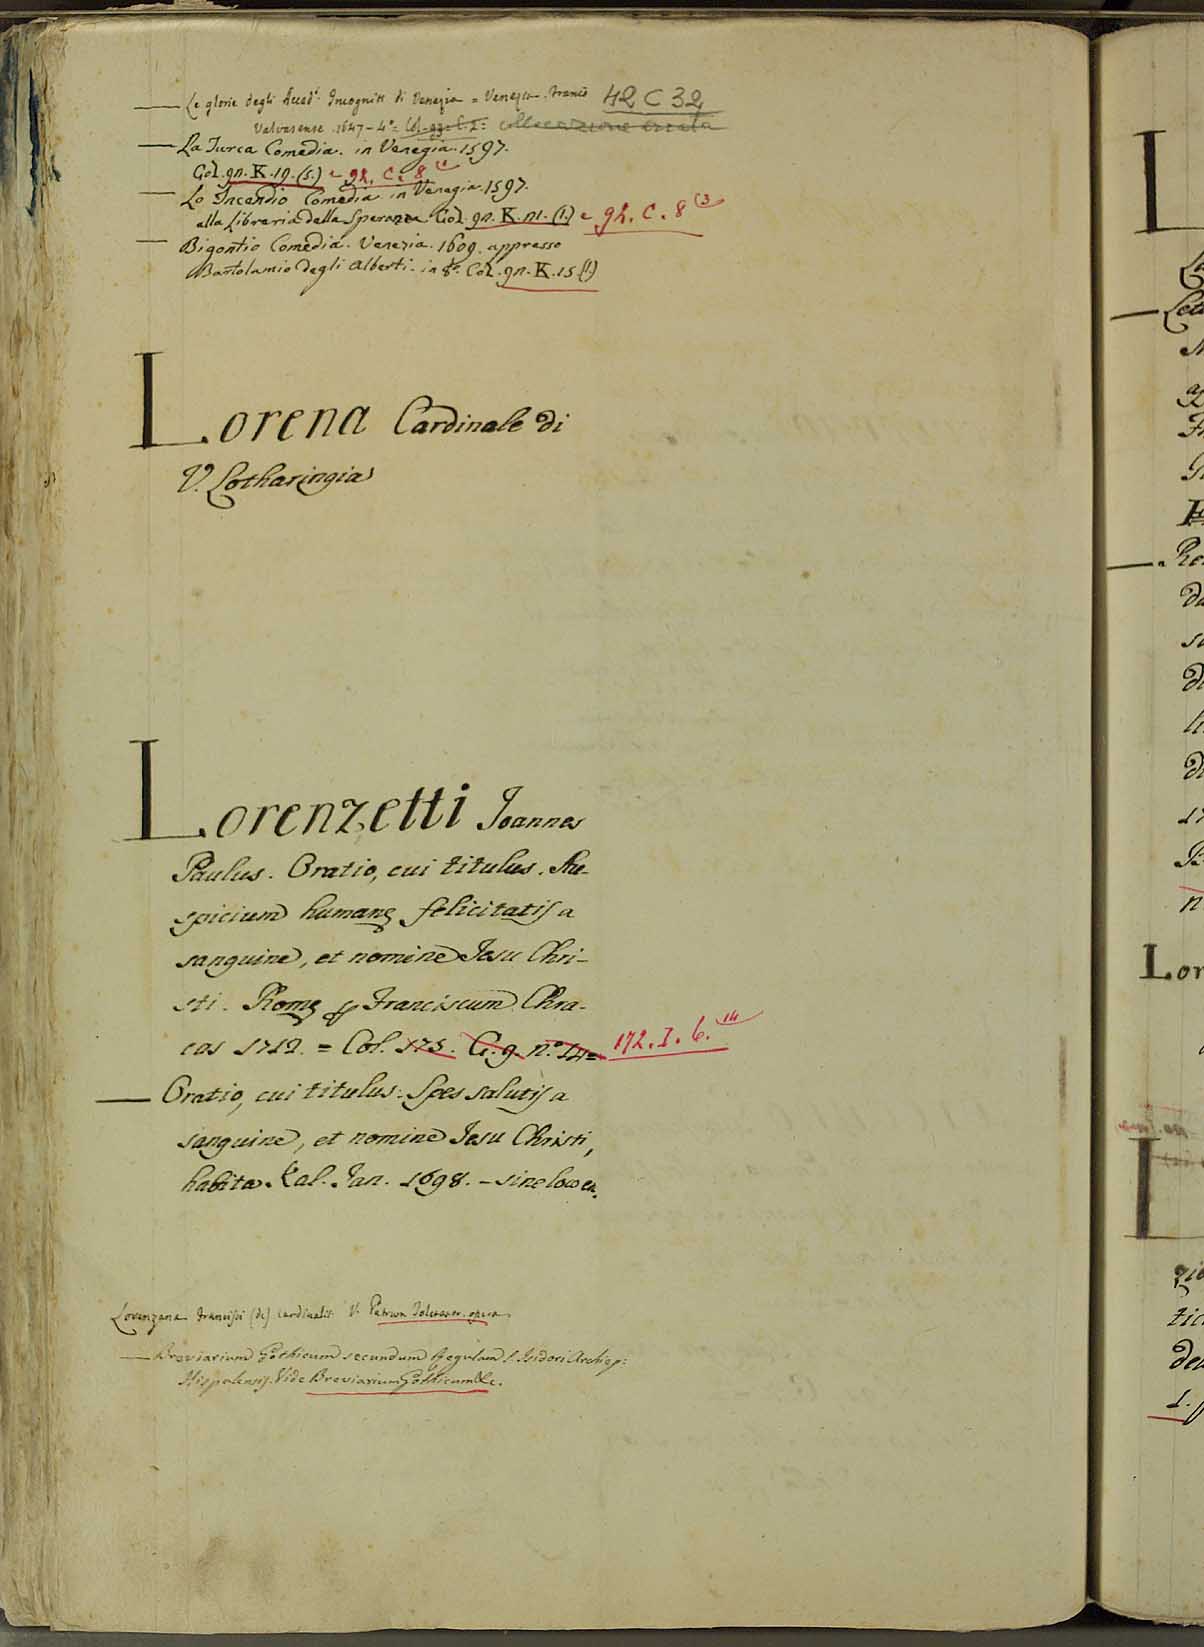 Le glorie degli Accad.i Incogniti di Venezia = Venezia. Franco 42 C 32
Valvasense. 1647 - 4.o = Col. collocazione errata
La Turca Comedia. in Venegia. 1597.
Col. 9n. K. 19. (5.) e 92. C. 8 (1
Lo Incendio Comedia. in Venegia. 1597.
alla Libraria della Speranza Col. 9n. K. n1. (1.) e 92. C. 8 (3
Bigontio Comedia. Venezia. 1609. appresso
Bartolamio degli Alberti. in 8.o Col. 9n. K. 15 (1)
Lorena Cardinale di
V. Lotharingia
Lorenzetti Joannes
Paulus. Oratio, cui titulus. Au-
spicium humanę felicitatis a
sanguine, et nomine Jesu Chri-
sti. Romę per Franciscum Chra-
cas 1712. = Col. 175. G. 9. n.o 14 = 172. I. 6. 14
Oratio, cui titulus: Spes salutis a
sanguine, et nomine Jesu Christi,
habita Kal. Jan. 1698. - sine loco ec.
Lorenzana Francisci (de) Cardinalis V. Patrum Toletanor. opera
Breviarium Gothicum secundum Regulam S. Isidori Archiep:
Hispalensis. Vide Breviarium Gothicum &c.
L
Lor
L